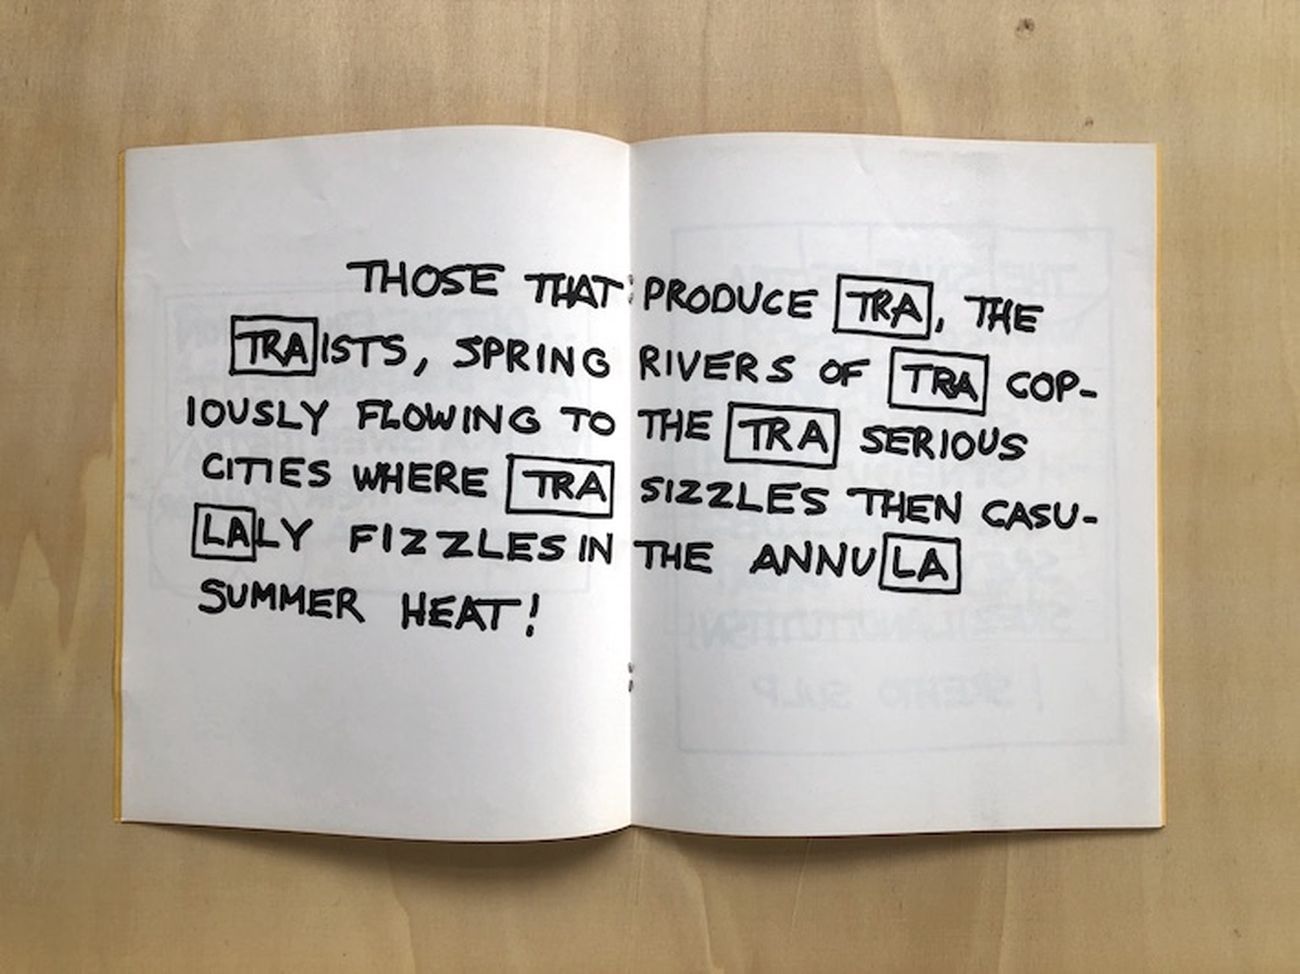 THOSE THAT PRODUCE TRA, THE
TRAISTS, SPRING RIVERS OF TRA COP-
IOUSLY FLOWING TO THE TRA SERIOUS
CITIES WHERE TRA SIZZLES THEN CASU-
LALY FIZZLES IN THE ANNULA
SUMMER HEAT!